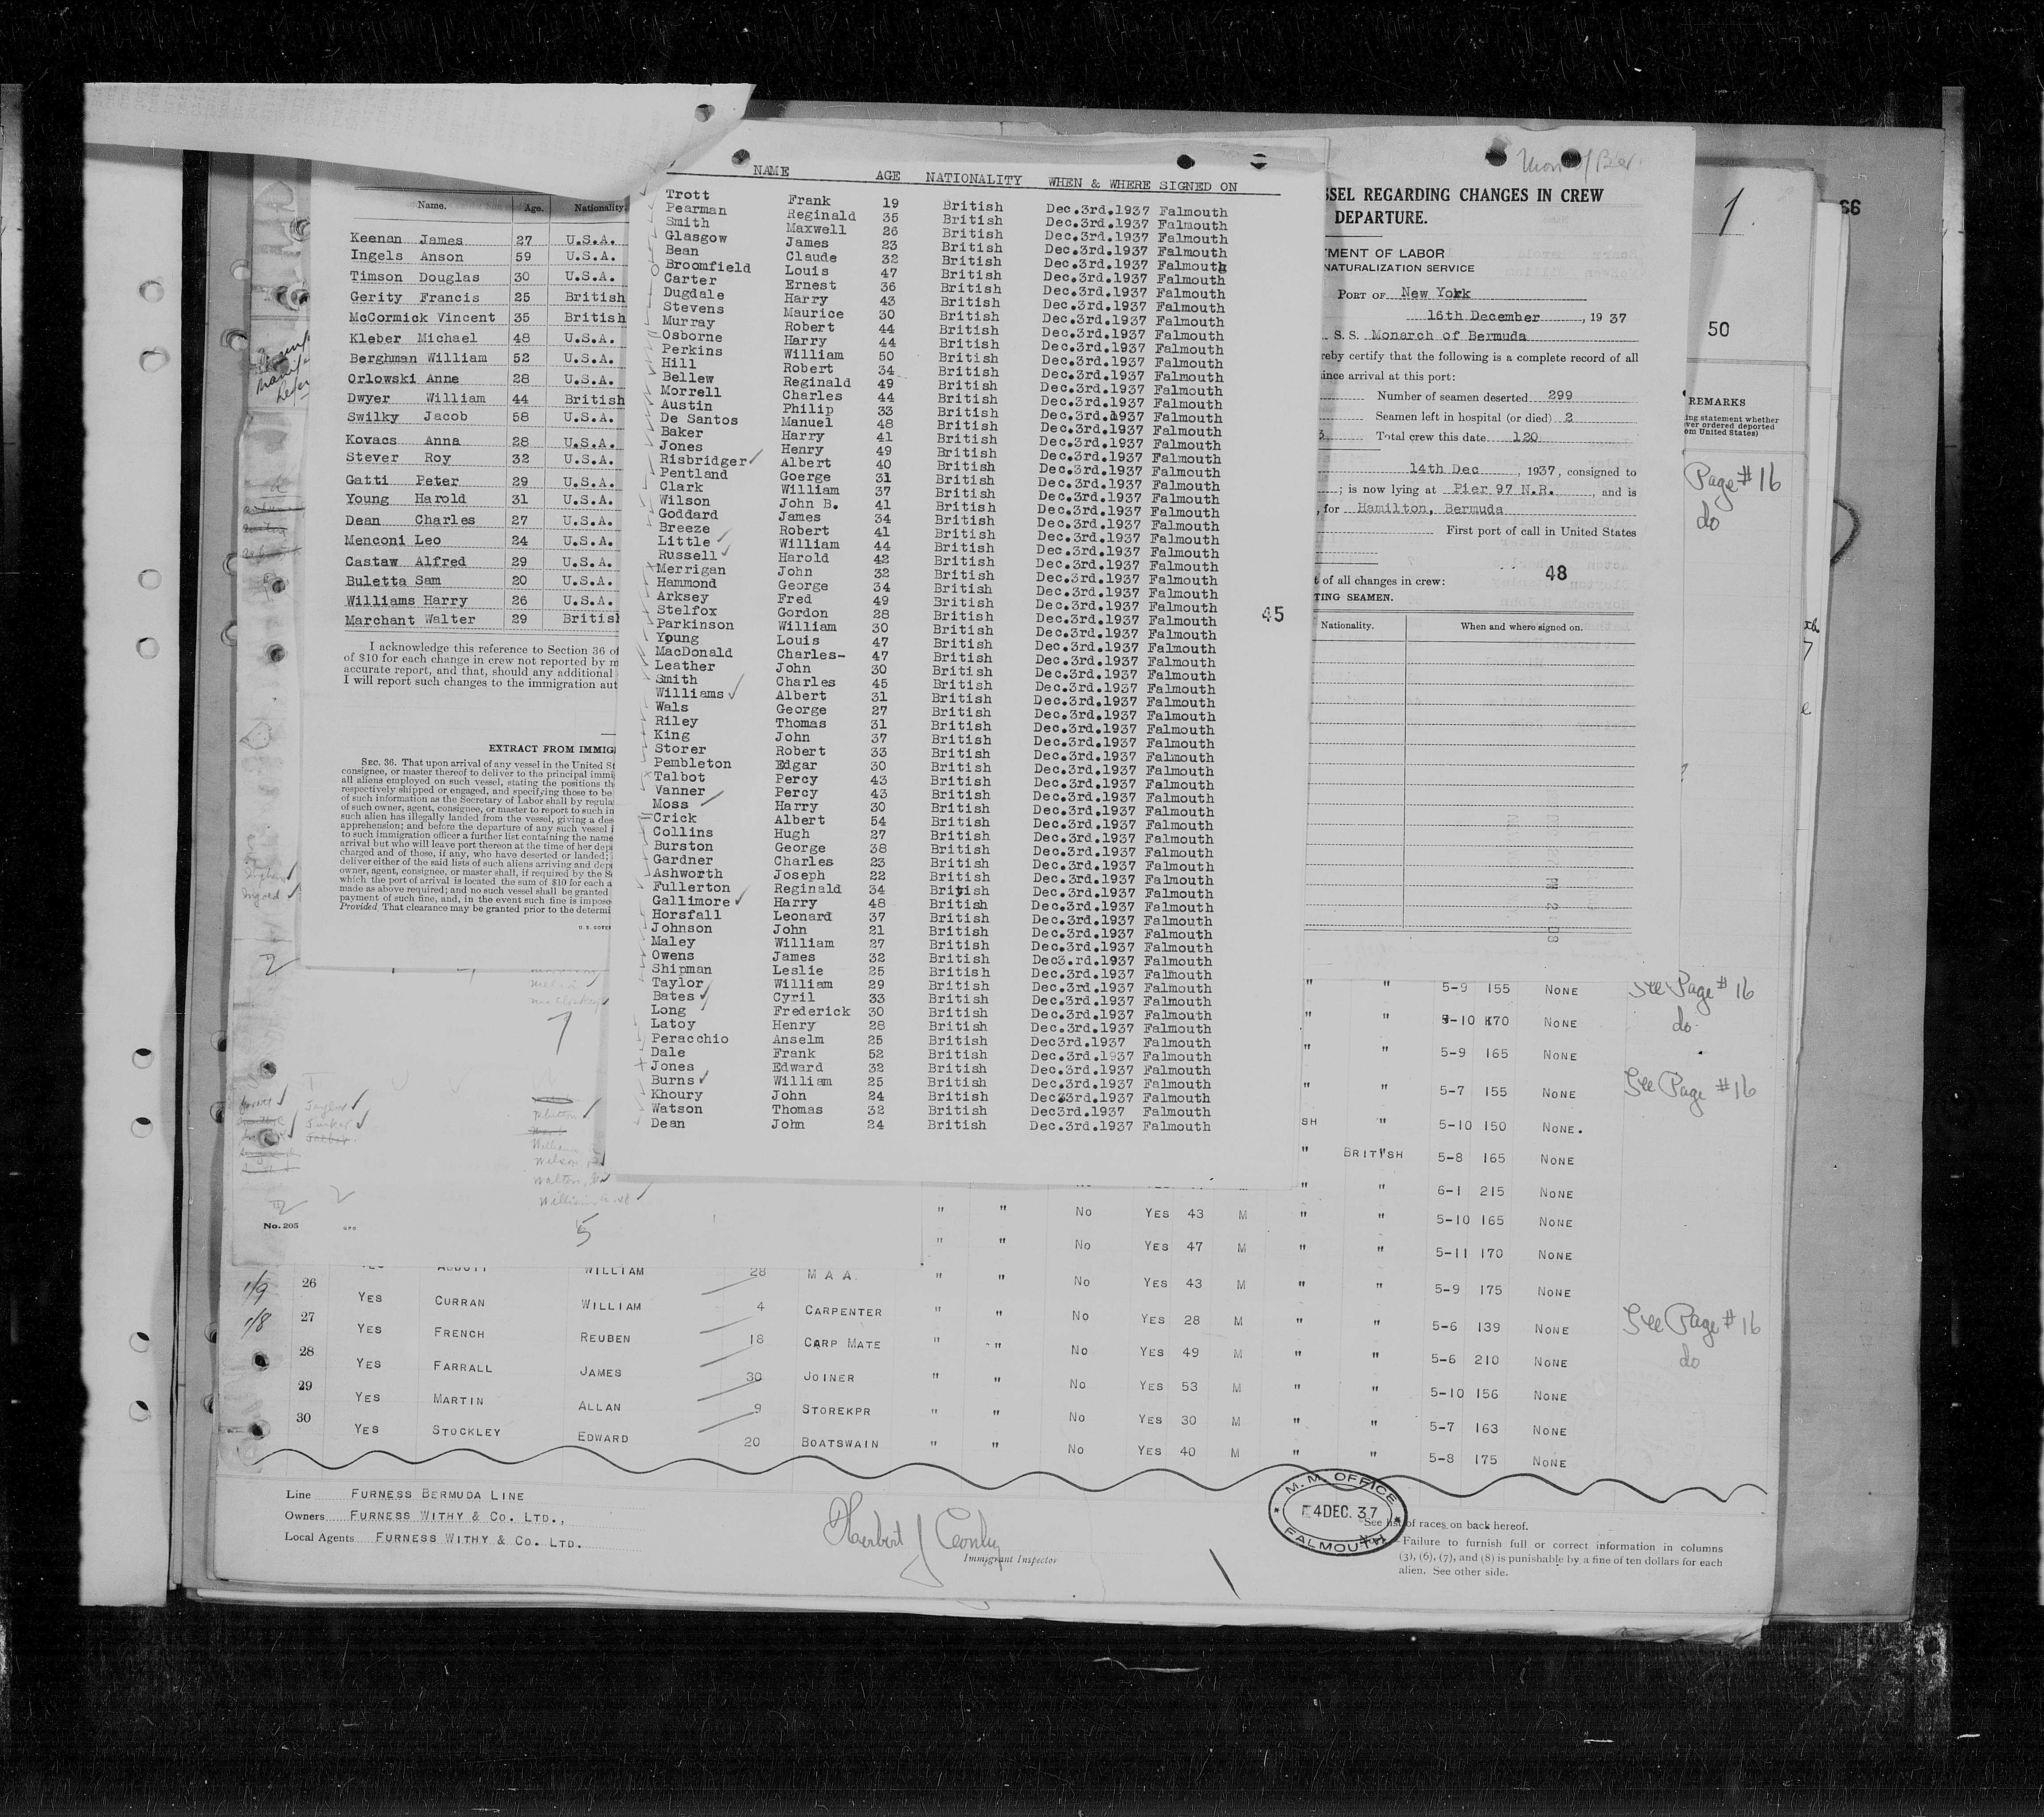 Name. Age. Nationality.
Keenan James 27 U.S.A.
Ingels Anson 59 U.S.A.
Timson Douglas 30 U.S.A.
Gerity Francis 25 British
McCormick Vincent 35 British
Kleber Michael 48 U.S.A.
Berghman William 52 U.S.A.
Orlowski Anne 28 U.S.A.
Dwyer William 44 British
Swilky Jacob 58 U.S.A.
Kovacs Anna 28 U.S.A.
Stever Roy 32 U.S.A.
Gatti Peter 29 U.S.A.
Young Harold 31 U.S.A.
Dean Charles 27 U.S.A.
Menconi Leo 24 U.S.A.
Castaw Alfred 29 U.S.A.
Buletta Sam 20 U.S.A.
Williams Harry 26 U.S.A.
Marchant Walter 29 British
I acknowledge this reference to Section 36 of
of $10 for each change in crew not reported by m
accurate report, and that, should any additional
I will report such changes to the immigration aut
EXTRACT FROM IMMIG
SEC. 36. That upon arrival of any vessel in the United St
consignee, or master thereof to deliver to the principal immi
all aliens employed on such vessel, stating the positions th
respectively shipped or engaged, and specifying those to be
of such information as the Secretary of Labor shall by regula
of such owner, agent, consignee, or master to report to such in
such alien has illegally landed from the vessel, giving a des
apprehension; and before the departure of any such vessel i
to such immigration officer a further list containing the name
arrival but who will leave port thereon at the time of her depa
charged and of those, if any, who have deserted or landed;
deliver either of the said lists of such aliens arriving and depa
owner, agent, consignee, or master shall, if required by the Se
which the port of arrival is located the sum of $10 for each a
made as above required; and no such vessel shall be granted
payment of such fine, and, in the event such fine is impose
Provided, That clearance may be granted prior to the determi
U. S. GOVER
NAME AGE NATIONALITY WHEN & WHERE SIGNED ON
Trott Frank 19 British Dec.3rd.1937 Falmouth
Pearman Reginald 35 British Dec.3rd.1937 Falmouth
Smith Maxwell 26 British Dec.3rd.1937 Falmouth
Glasgow James 23 British Dec.3rd.1937 Falmouth
Bean Claude 32 British Dec.3rd.1937 Falmouth
Broomfield Louis 47 British Dec.3rd.1937 Falmouth
Carter Ernest 36 British Dec.3rd.1937 Falmouth
Dugdale Harry 43 British Dec.3rd.1937 Falmouth
Stevens Maurice 30 British Dec.3rd.1937 Falmouth
Murray Robert 44 British Dec.3rd.1937 Falmouth
Osborne Harry 44 British Dec.3rd.1937 Falmouth
Perkins William 50 British Dec.3rd.1937 Falmouth
Hill Robert 34 British Dec.3rd.1937 Falmouth
Bellew Reginald 49 British Dec.3rd.1937 Falmouth
Morrell Charles 44 British Dec.3rd.1937 Falmouth
Austin Philip 33 British Dec.3rd.1937 Falmouth
De Santos Manuel 48 British Dec.3rd.1937 Falmouth
Baker Harry 41 British Dec.3rd.1937 Falmouth
Jones Henry 49 British Dec.3rd.1937 Falmouth
Risbridger Albert 40 British Dec.3rd.1937 Falmouth
Pentland Goerge 31 British Dec.3rd.1937 Falmouth
Clark William 37 British Dec.3rd.1937 Falmouth
Wilson John B. 41 British Dec.3rd.1937 Falmouth
Goddard James 34 British Dec.3rd.1937 Falmouth
Breeze Robert 41 British Dec.3rd.1937 Falmouth
Little William 44 British Dec.3rd.1937 Falmouth
Russell Harold 42 British Dec.3rd.1937 Falmouth
Merrigan John 32 British Dec.3rd.1937 Falmouth
Hammond George 34 British Dec.3rd.1937 Falmouth
Arksey Fred 49 British Dec.3rd.1937 Falmouth
Stelfox Gordon 28 British Dec.3rd.1937 Falmouth
Parkinson William 30 British Dec.3rd.1937 Falmouth
Young Louis 47 British Dec.3rd.1937 Falmouth
MacDonald Charles- 47 British Dec.3rd.1937 Falmouth
Leather John 30 British Dec.3rd.1937 Falmouth
Smith Charles 45 British Dec.3rd.1937 Falmouth
Williams Albert 31 British Dec.3rd.1937 Falmouth
Wals George 27 British Dec.3rd.1937 Falmouth
Riley Thomas 31 British Dec.3rd.1937 Falmouth
King John 37 British Dec.3rd.1937 Falmouth
Storer Robert 33 British Dec.3rd.1937 Falmouth
Pembleton Edgar 30 British Dec.3rd.1937 Falmouth
Talbot Percy 43 British Dec.3rd.1937 Falmouth
Vanner Percy 43 British Dec.3rd.1937 Falmouth
Moss Harry 30 British Dec.3rd.1937 Falmouth
Crick Albert 54 British Dec.3rd.1937 Falmouth
Collins Hugh 27 British Dec.3rd.1937 Falmouth
Burston George 38 British Dec.3rd.1937 Falmouth
Gardner Charles 23 British Dec.3rd.1937 Falmouth
Ashworth Joseph 22 British Dec.3rd.1937 Falmouth
Fullerton Reginald 34 British Dec.3rd.1937 Falmouth
Gallimore Harry 48 British Dec.3rd.1937 Falmouth
Horsfall Leonard 37 British Dec.3rd.1937 Falmouth
Johnson John 21 British Dec.3rd.1937 Falmouth
Maley William 27 British Dec.3rd.1937 Falmouth
Owens James 32 British Dec3.rd.1937 Falmouth
Shipman Leslie 25 British Dec.3rd.1937 Falmouth
Taylor William 29 British Dec.3rd.1937 Falmouth
Bates Cyril 33 British Dec.3rd.1937 Falmouth
Long Frederick 30 British Dec.3rd.1937 Falmouth
Latoy Henry 28 British Dec.3rd.1937 Falmouth
Peracchio Anselm 25 British Dec3rd.1937 Falmouth
Dale Frank 52 British Dec.3rd.1937 Falmouth
Jones Edward 32 British Dec.3rd.1937 Falmouth
Burns William 25 British Dec.3rd.1937 Falmouth
Khoury John 24 British Dec33rd.1937 Falmouth
Watson Thomas 32 British Dec3rd.1937 Falmouth
Dean John 24 British Dec.3rd.1937 Falmouth
45
SSEL REGARDING CHANGES IN CREW
DEPARTURE.
TMENT OF LABOR
NATURALIZATION SERVICE
PORT OF New York
16th December, 1937
S. S. Monarch of Bermuda
reby certify that the following is a complete record of all
ince arrival at this port:
Number of seamen deserted 299
Seamen left in hospital (or died) 2
3 Total crew this date 120
14th Dec, 1937, consigned to
; is now lying at Pier 97 N.R., and is
, for Hamilton, Bermuda
First port of call in United States
t of all changes in crew: 48
TING SEAMEN.
Nationality. When and where signed on.
1.
66
50
REMARKS
ing statement whether
ver ordered deported
om United States)
Page #16
do
" " 5-9 155 NONE See Page #16
" " 5-10 170 NONE do
" " 5-9 165 NONE
" " 5-7 155 NONE See Page #16
SH " 5-10 150 NONE.
" BRITISH 5-8 165 NONE
" " 6-1 215 NONE
" " No YES 43 M " " 5-10 165 NONE
" " No YES 47 M " " 5-11 170 NONE
No. 205 GPO
7
2
5
ABBOTT WILLIAM 28 M A A. " " No YES 43 M " " 5-9 175 NONE
26 YES CURRAN WILLIAM 4 CARPENTER " " No YES 28 M " " 5-6 139 NONE See Page #16
27 YES FRENCH REUBEN 18 CARP MATE " " No YES 49 M " " 5-6 210 NONE do
28 YES FARRALL JAMES 30 JOINER " " No YES 53 M " " 5-10 156 NONE
29 YES MARTIN ALLAN 9 STOREKPR " " No YES 30 M " " 5-7 163 NONE
30 YES STOCKLEY EDWARD 20 BOATSWAIN " " No YES 40 M " " 5-8 175 NONE
Line FURNESS BERMUDA LINE
Owners FURNESS WITHY & CO. LTD.,
Local Agents FURNESS WITHY & CO. LTD.
Immigrant Inspector
M. M. OFFICE
4 DEC. 37
FALMOUTH
See list of races on back hereof.
Failure to furnish full or correct information in columns
(3), (6), (7), and (8) is punishable by a fine of ten dollars for each
alien. See other side.